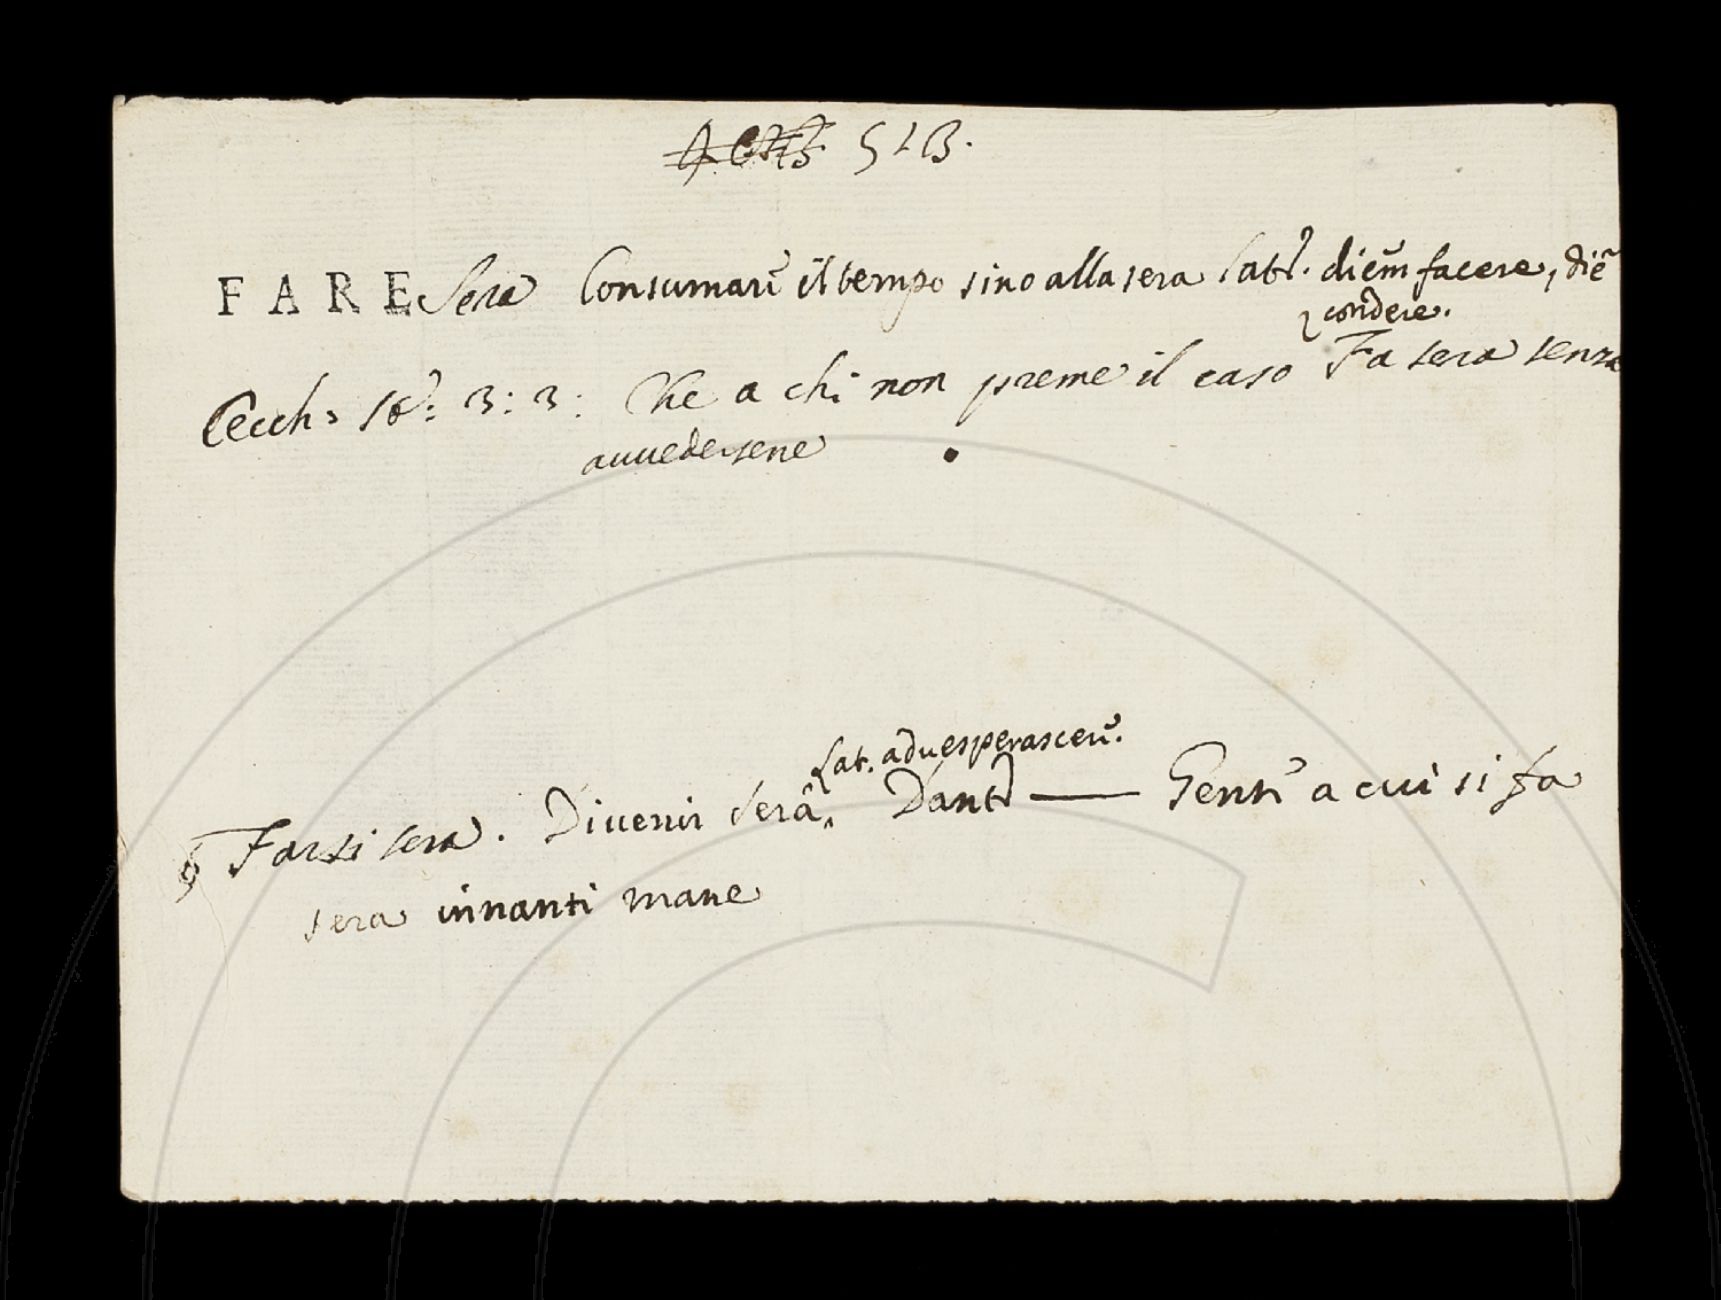 513.
FARE Sera Consumare il tempo sino alla sera Lat. diem facere, diē
condere.
Cecch. 3: 3: Che a chi non preme il caso Fa sera senza
avvedersene
Lat. advesperascere.
§ Farsi sera. Divenir Sera Dant — Genti a cui si fa
sera innanti mane